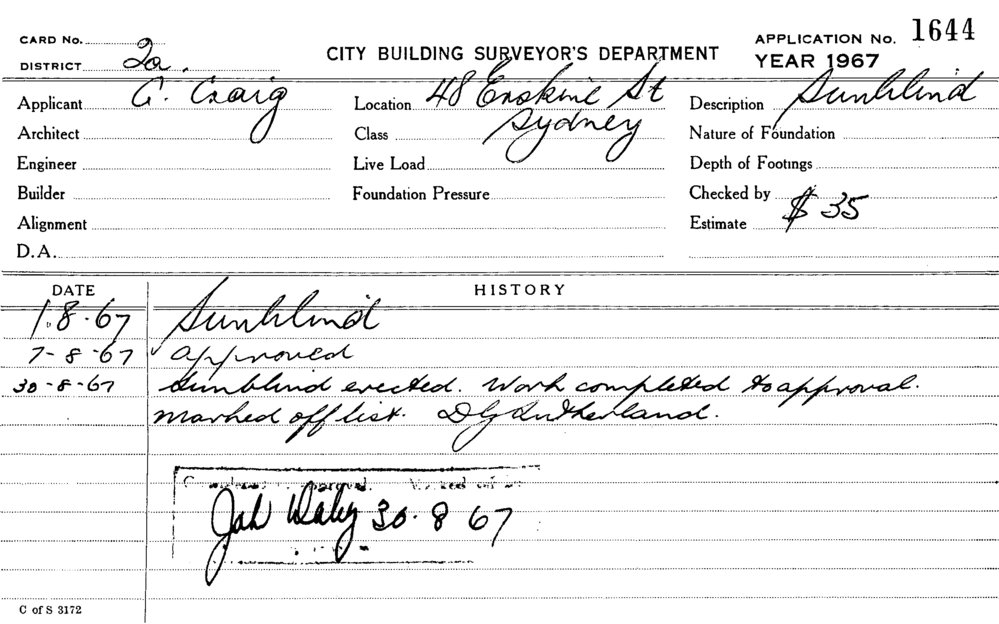 CARD No.
CITY BUILDING SURVEYOR'S DEPARTMENT
APPLICATION No. 1644
DISTRICT 2a.
YEAR 1967
Applicant G. Craig
Location 48 Erskine St
Description Sunblind
Architect
Class Sydney
Nature of Foundation
Engineer
Live Load
Depth of Footings
Builder
Foundation Pressure
Checked by
Alignment
Estimate $ 35
D.A.
DATE HISTORY
1.8.67 Sunblind
7-8-67 approved
30-8-67 Sunblind erected. Work completed to approval.
marked off list. DG Sutherland.
30.8 67
C of S 3172